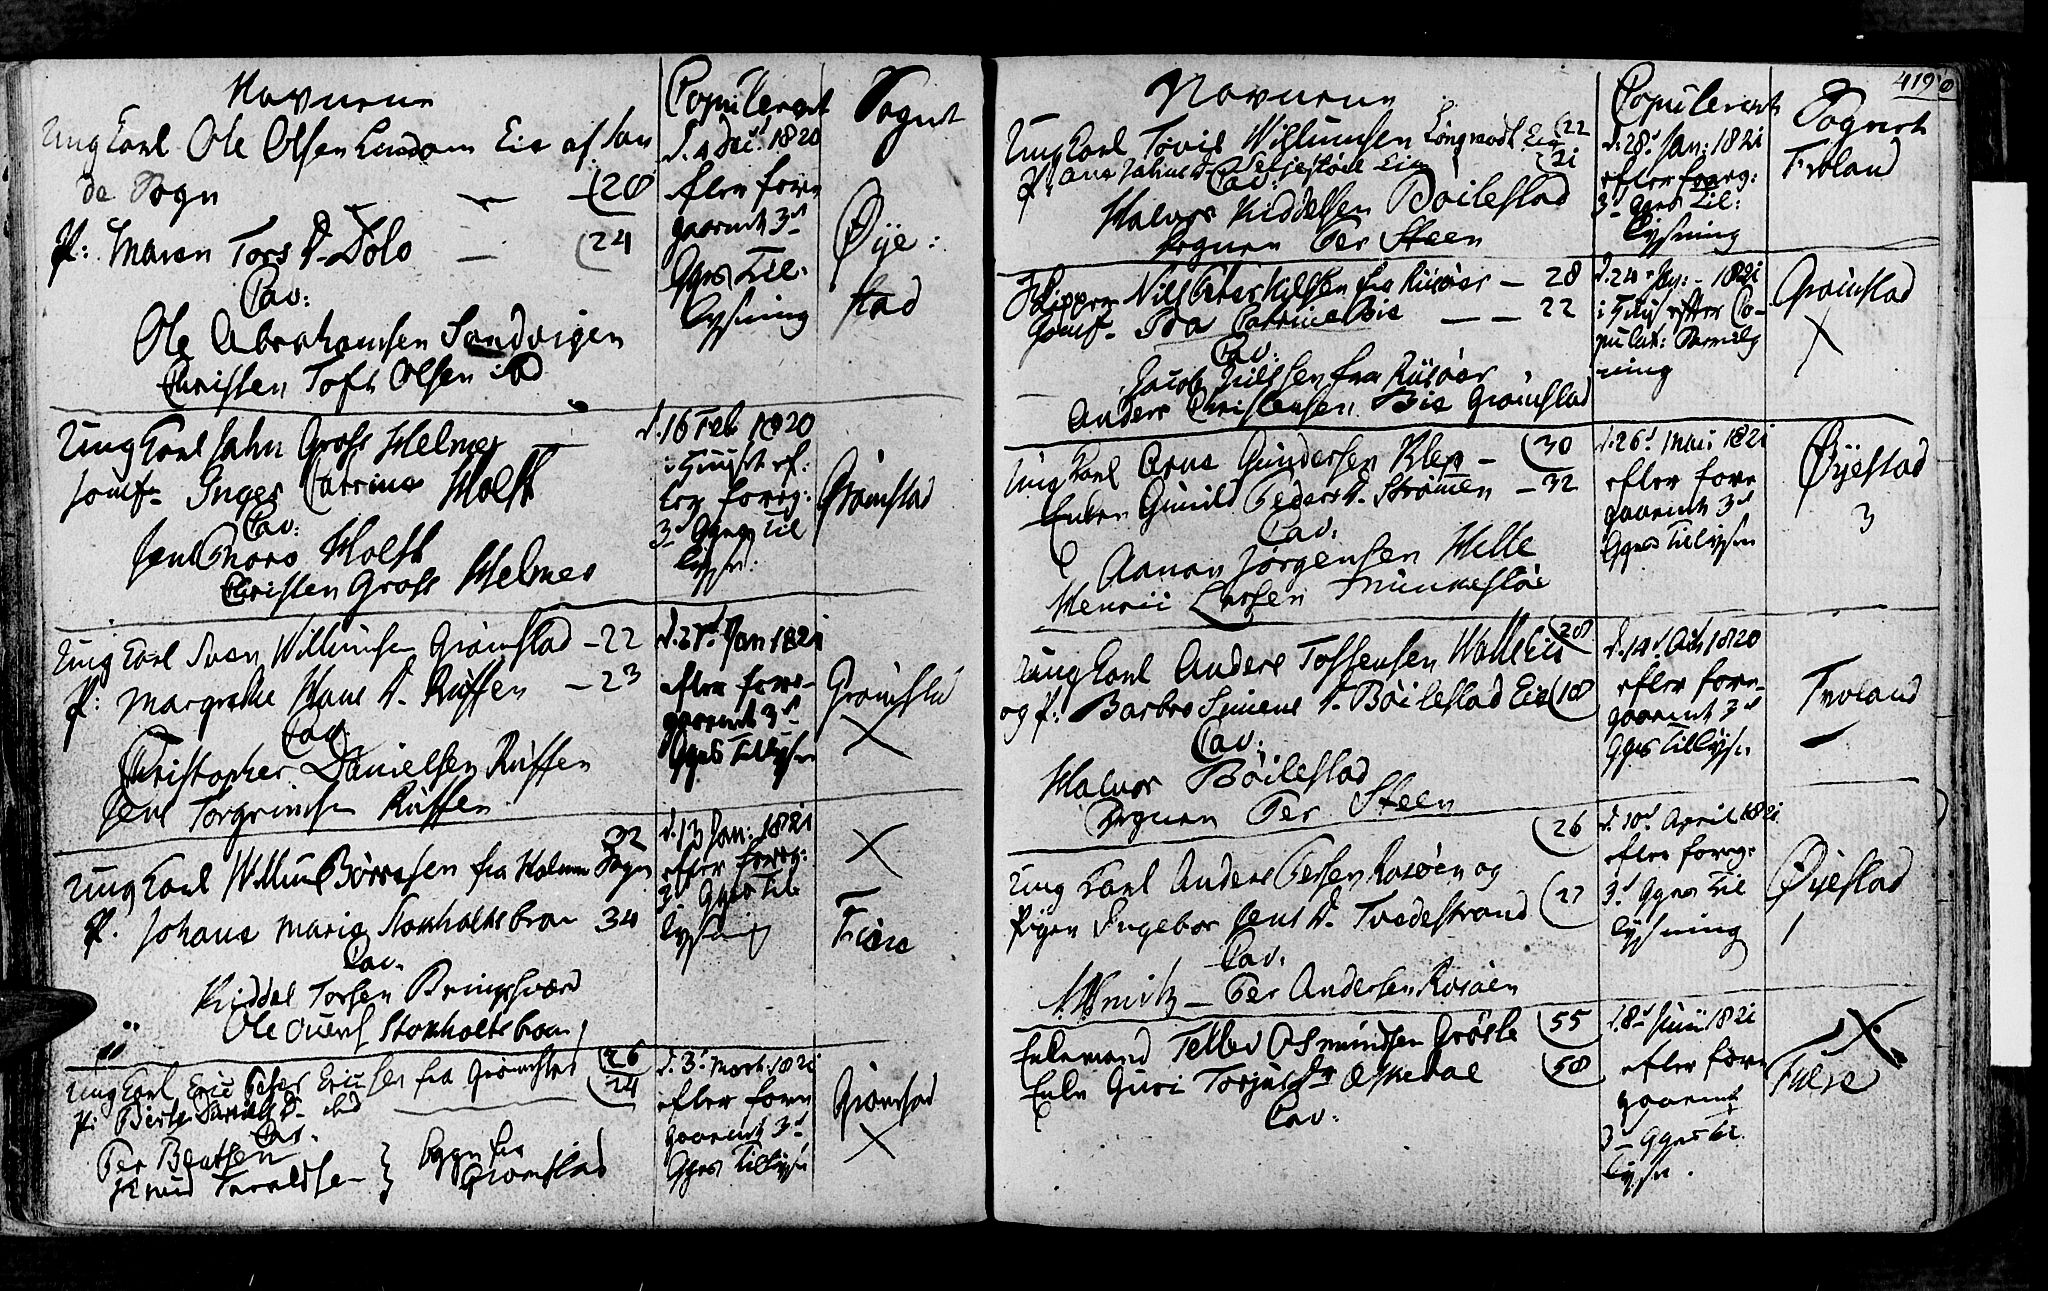 Navnene
Copuleret
Sognet
Ungkarl Ole Olsen Eie af Lan
de Sogn (20
P: Maren Tors D. Dolo (24
Cav:
Ole Abrahamsen Sandvigen
Christen Toft Olsen ibd
d. 4 Dec. 1820
efter fore
gaaende 3de
Gges Til:
lysning
Øye:
stad
Ungkarl Jahn Gross Helmer
Jomf. Inger Catrine Holst
Cav:
Jens Holst
Christen Gross Helmer
d. 16 Feb 1820
i Huuset ef:
ter foreg:
3de Gges Til
lysn.
Grømstad
Ungkarl Sven Willumsen Grømstad - 22
P: Margrethe Hans D. Røffen - 23
Cav:
Christopher Danielsen Røffen
Jens Torgrimsen Røffen
d. 27de Jan 1821
efter fore-
gaaende 3de
Gges Tillysn
Grømstad
X
Ungkarl Willum Børresen fra Holme Sogn 32
P. Johane Marie Stoxholtsbroen 34
Cav.
Kiddel Torsen Bringsværd
Ole Stoxholtsbroen
d. 13 Jan: 1821
efter foreg:
3de Gges Til
lysning
X
Fiære
Ungkarl Eric Peter Ericsen fra Grømstad (26
P: Birte Daniels D. ibd 24
Cav.
Per Bentsen
Knud Taraldsen } Grømstad
d. 3de Mart. 1821
efter fore
gaaende 3de
Gges Tillysn
Grømstad
X
419
Navnene
Copuleret
Sognet
Ungkarl Tovis Willumsen Eie (22
P: Ane Eie (21
Cav:
Halvor Kiddelsen Bøilestad
Degnen Per Steen
d. 28de Jan: 1821
efter foreg:
3de Gges Til:
lysning
Froland
Skipper Nils Peter Nilsen fra Riisøer - 28
Jomf. Ida Catrine Bie - 22
Cav:
Jacob Juelsen fra Riisøer
Anders Christensen Bie Grømstad
d. 24de 1821
i Huus efter Co-
pulat: Bevilg
ning
Grømstad
X
Ungkarl Arne Gundersen Klep - (30
Enken Gunild Peders D. Strømen - 32
Cav.
Aanon Jørgensen Helle
Henric Larsen
d. 26de Mai 1821
efter fore
gaaende 3de
Gges Tillysn
Øyestad
3
Ungkarl Anders Tossensen Eie (20
og P: Barbro Simens D. Bøilestad Eie (18
Cav:
Halvor Bøilestad
Degnen Per Steen
d. 14de Oct 1820
efter fore-
gaaende 3de
Gges Tillysn
Froland
Ungkarl Anders Persen Rosøen og (26
Pigen Ingebor Jens D. Tvedestrand (27
Cav.
Smith - Per Andersen Rosøen
d. 10de April 1821
efter foreg:
3de Gges Til
lysning
Øyestad
1
Enkemand Tellev Osmundsen Grøsle (55
Enke Guri Torjus Dr Espedal (58
Cav:
d. 8de Junii 1821
efter fore
gaaende
3de Gges Til
lysn.
X
Fiære